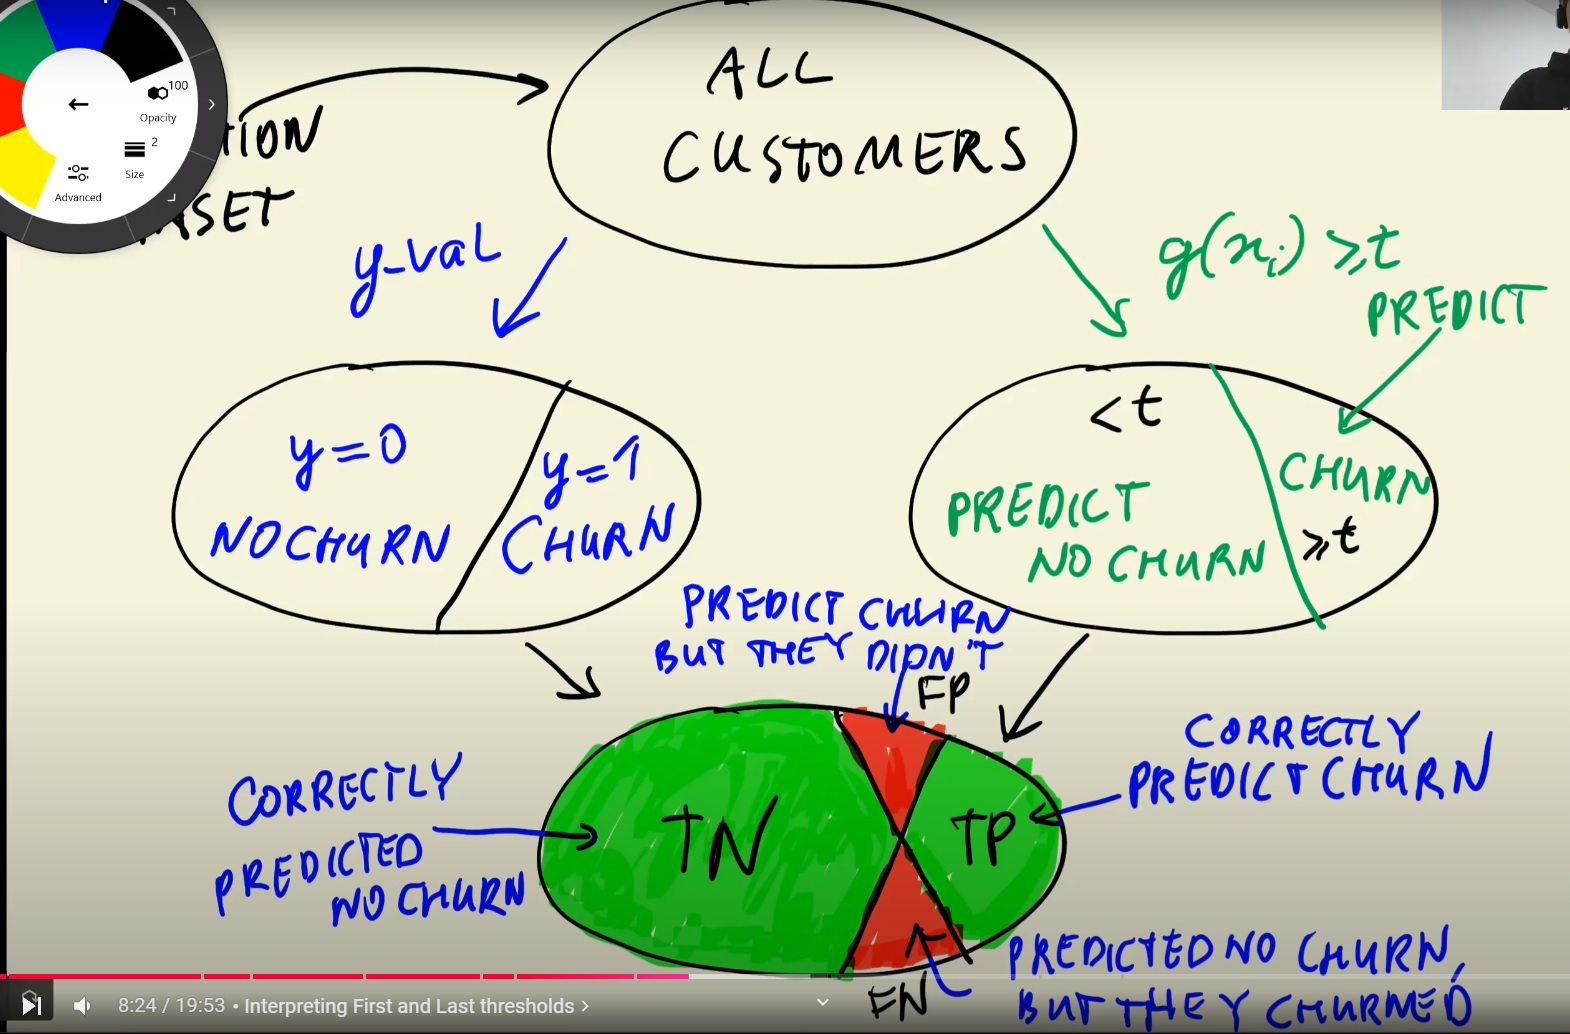 ALL
CUSTOMERS
100
Opacity
2
Size
Advanced
y-val
g(xᵢ) ⩾t
PREDICT
y=0
NO CHURN
y=1
CHURN
<t
PREDICT
NO CHURN
CHURN
⩾t
PREDICT CHURN
BUT THEY DIDN'T
FP
CORRECTLY
PREDICTED
NO CHURN
TN
TP
CORRECTLY
PREDICT CHURN
FN
PREDICTED NO CHURN,
BUT THEY CHURNED
8:24 / 19:53 • Interpreting First and Last thresholds >